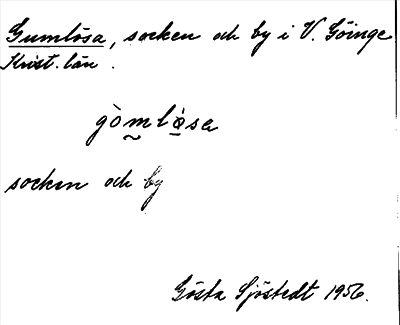 Gumlösa, socken och by i V. Göinge
Krist. län.
gòmlö̀sa
socken och by
Gösta Sjöstedt 1956.